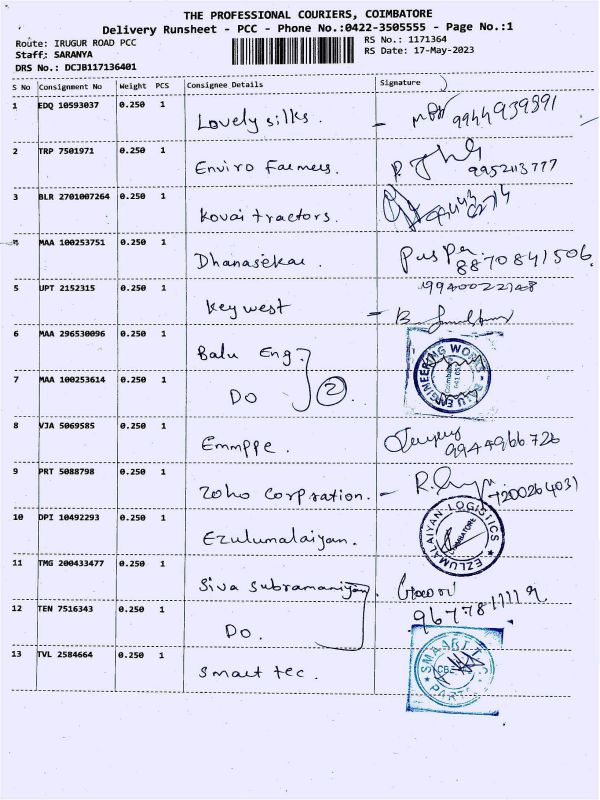 THE PROFESSIONAL COURIERS, COIMBATORE
Delivery Runsheet - PCC - Phone No.:0422-3505555 - Page No.:1
Route: IRUGUR ROAD PCC
Staff: SARANYA
DRS No.: DCJB117136401
RS No.: 1171364
RS Date: 17-May-2023
S No Consignment No Weight PCS Consignee Details Signature
1 EDQ 10593037 0.250 1 Lovely silks.
2 TRP 7501971 0.250 1 Enviro Farmers
9952113777
3 BLR 2701007264 0.250 1 Kovai tractors.
MAA 100253751 0.250 1 Dhanasekar. Puspa
8870841506.
5 UPT 2152315 0.250 1 Key west
9940022748
6 MAA 296530096 0.250 1 Balu Eng.
BALU ENGINEERING WORKS
7 MAA 100253614 0.250 1 Do 2
8 VJA 5069585 0.250 1 Emmppe.
9944966726
9 PRT 5088798 0.250 1 Zoho Corpration. -
7200264031
10 DPI 10492293 0.250 1 Ezulumalaiyan.
EZLUMALAIYAN LOGISTICS
COIMBATORE
11 TMG 200433477 0.250 1 Siva Subramaniyan.
12 TEN 7516343 0.250 1 Do.
13 TVL 2584664 0.250 1 Smart tec.